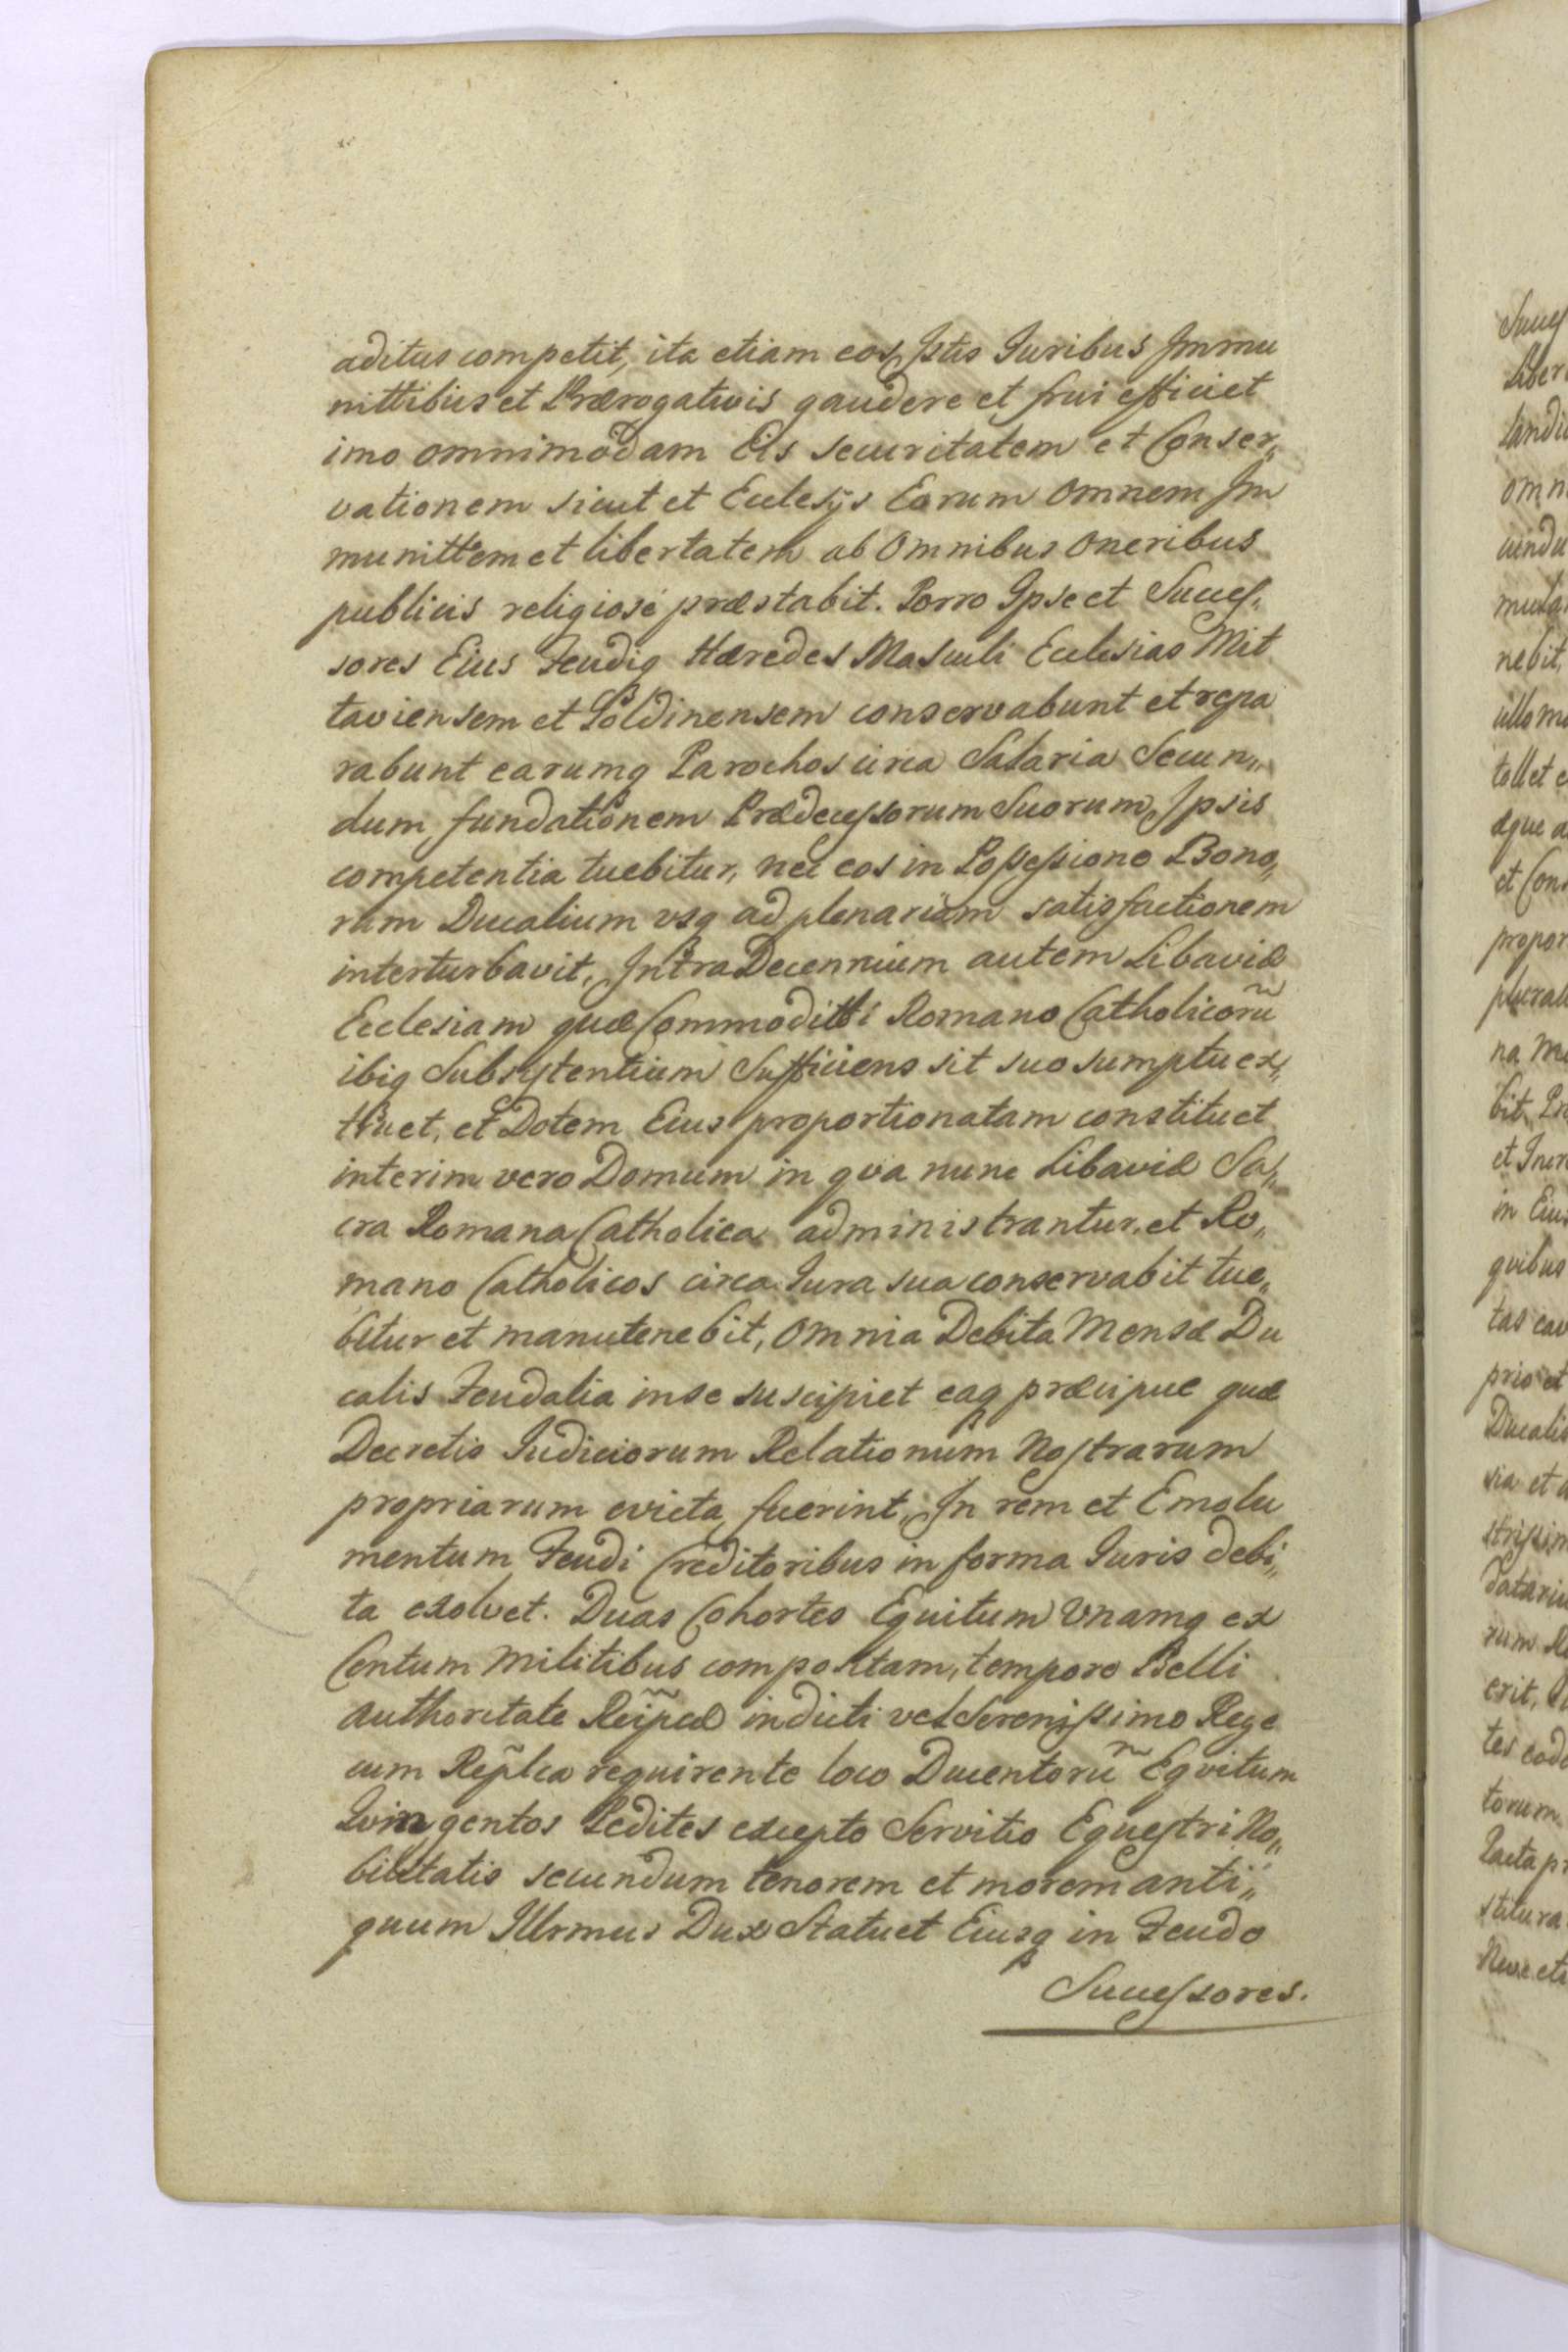 aditus competit, ita etiam eos Istis Iuribus Immu
nittibus et Prærogativis gaudere et frui efficiet
imo omnimodam Eis securitatem et Conser„
vationem sicut et Ecclesijs Earum Omnem Im
munittem et libertatem ab Omnibus Oneribus
publicis religiosé præstabit. Porro Ipse et Succes„
sores Eius Feudiq Hæredes Masculi Ecclesias Mit
taviensem et Goldinensem conservabunt et repa
rabunt earumq Parochos circa Salaria Secun„
dum fundationem Prædecessorum Suorum, Ipsis
competentia tuebitur, nec eos in Possessione Bono„
rum Ducalium vsq ad plenariam satisfactionem
interturbavit, Intra Decennium autem Libaviæ
Ecclesiam quæ Commoditti Romano Catholicorũ
ibiq Subsystentium Sufficiens sit suo sumptu ex„
truet, et Dotem Eius proportionatam constituet
interim vero Domum in qva nunc Libaviæ Sa„
cra Romana Catholica administrantur, et Ro„
mano Catholicos circa Iura sua conservabit tue„
bitur et manutenebit, Omnia Debita Mensæ Du
calis Feudalia in se suscipiet eaq præcipue quæ
Decretis Iudiciorum Relationum Nostrarum
propriarum evicta fuerint, In rem et Emolu
mentum Feudi Creditoribus in forma Iuris debi„
ta exolvet. Duas Cohortes Equitum Vnamq ex
Centum militibus compositam, tempore Belli
Authoritate Reĩpcæ indicti vel Serenissimo Rege
cum Rep̃lca requirente loco Ducentorũ Eqvitum
Qvingentos Pedites excepto Servitio Equestri No„
bilitatis secundum tenorem et morem anti„
quum Illrmus Dux Statuet Eiusq in Feudo
Successores.

Succes
Liber
landi
omn
nebit,
tollet e
æque a
et Con
propor
plural
na m
bit, Pr
in Eiu
qvibus
tas cav
prio et
Ducalis
sia et a
strissim
datariu
rum
erit,
torum
Pacta p